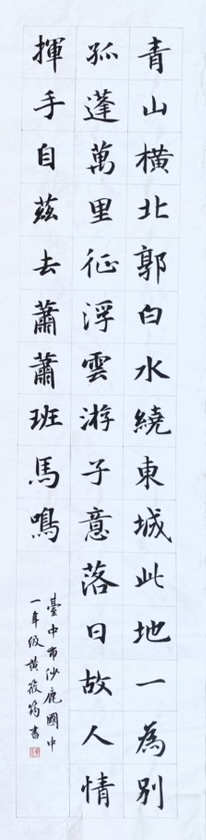 青山橫北郭白水繞東城此地一為別
孤蓬萬里征浮雲游子意落日故人情
揮手自茲去蕭蕭班馬鳴
臺中市沙鹿國中
一年級黃筱筠書